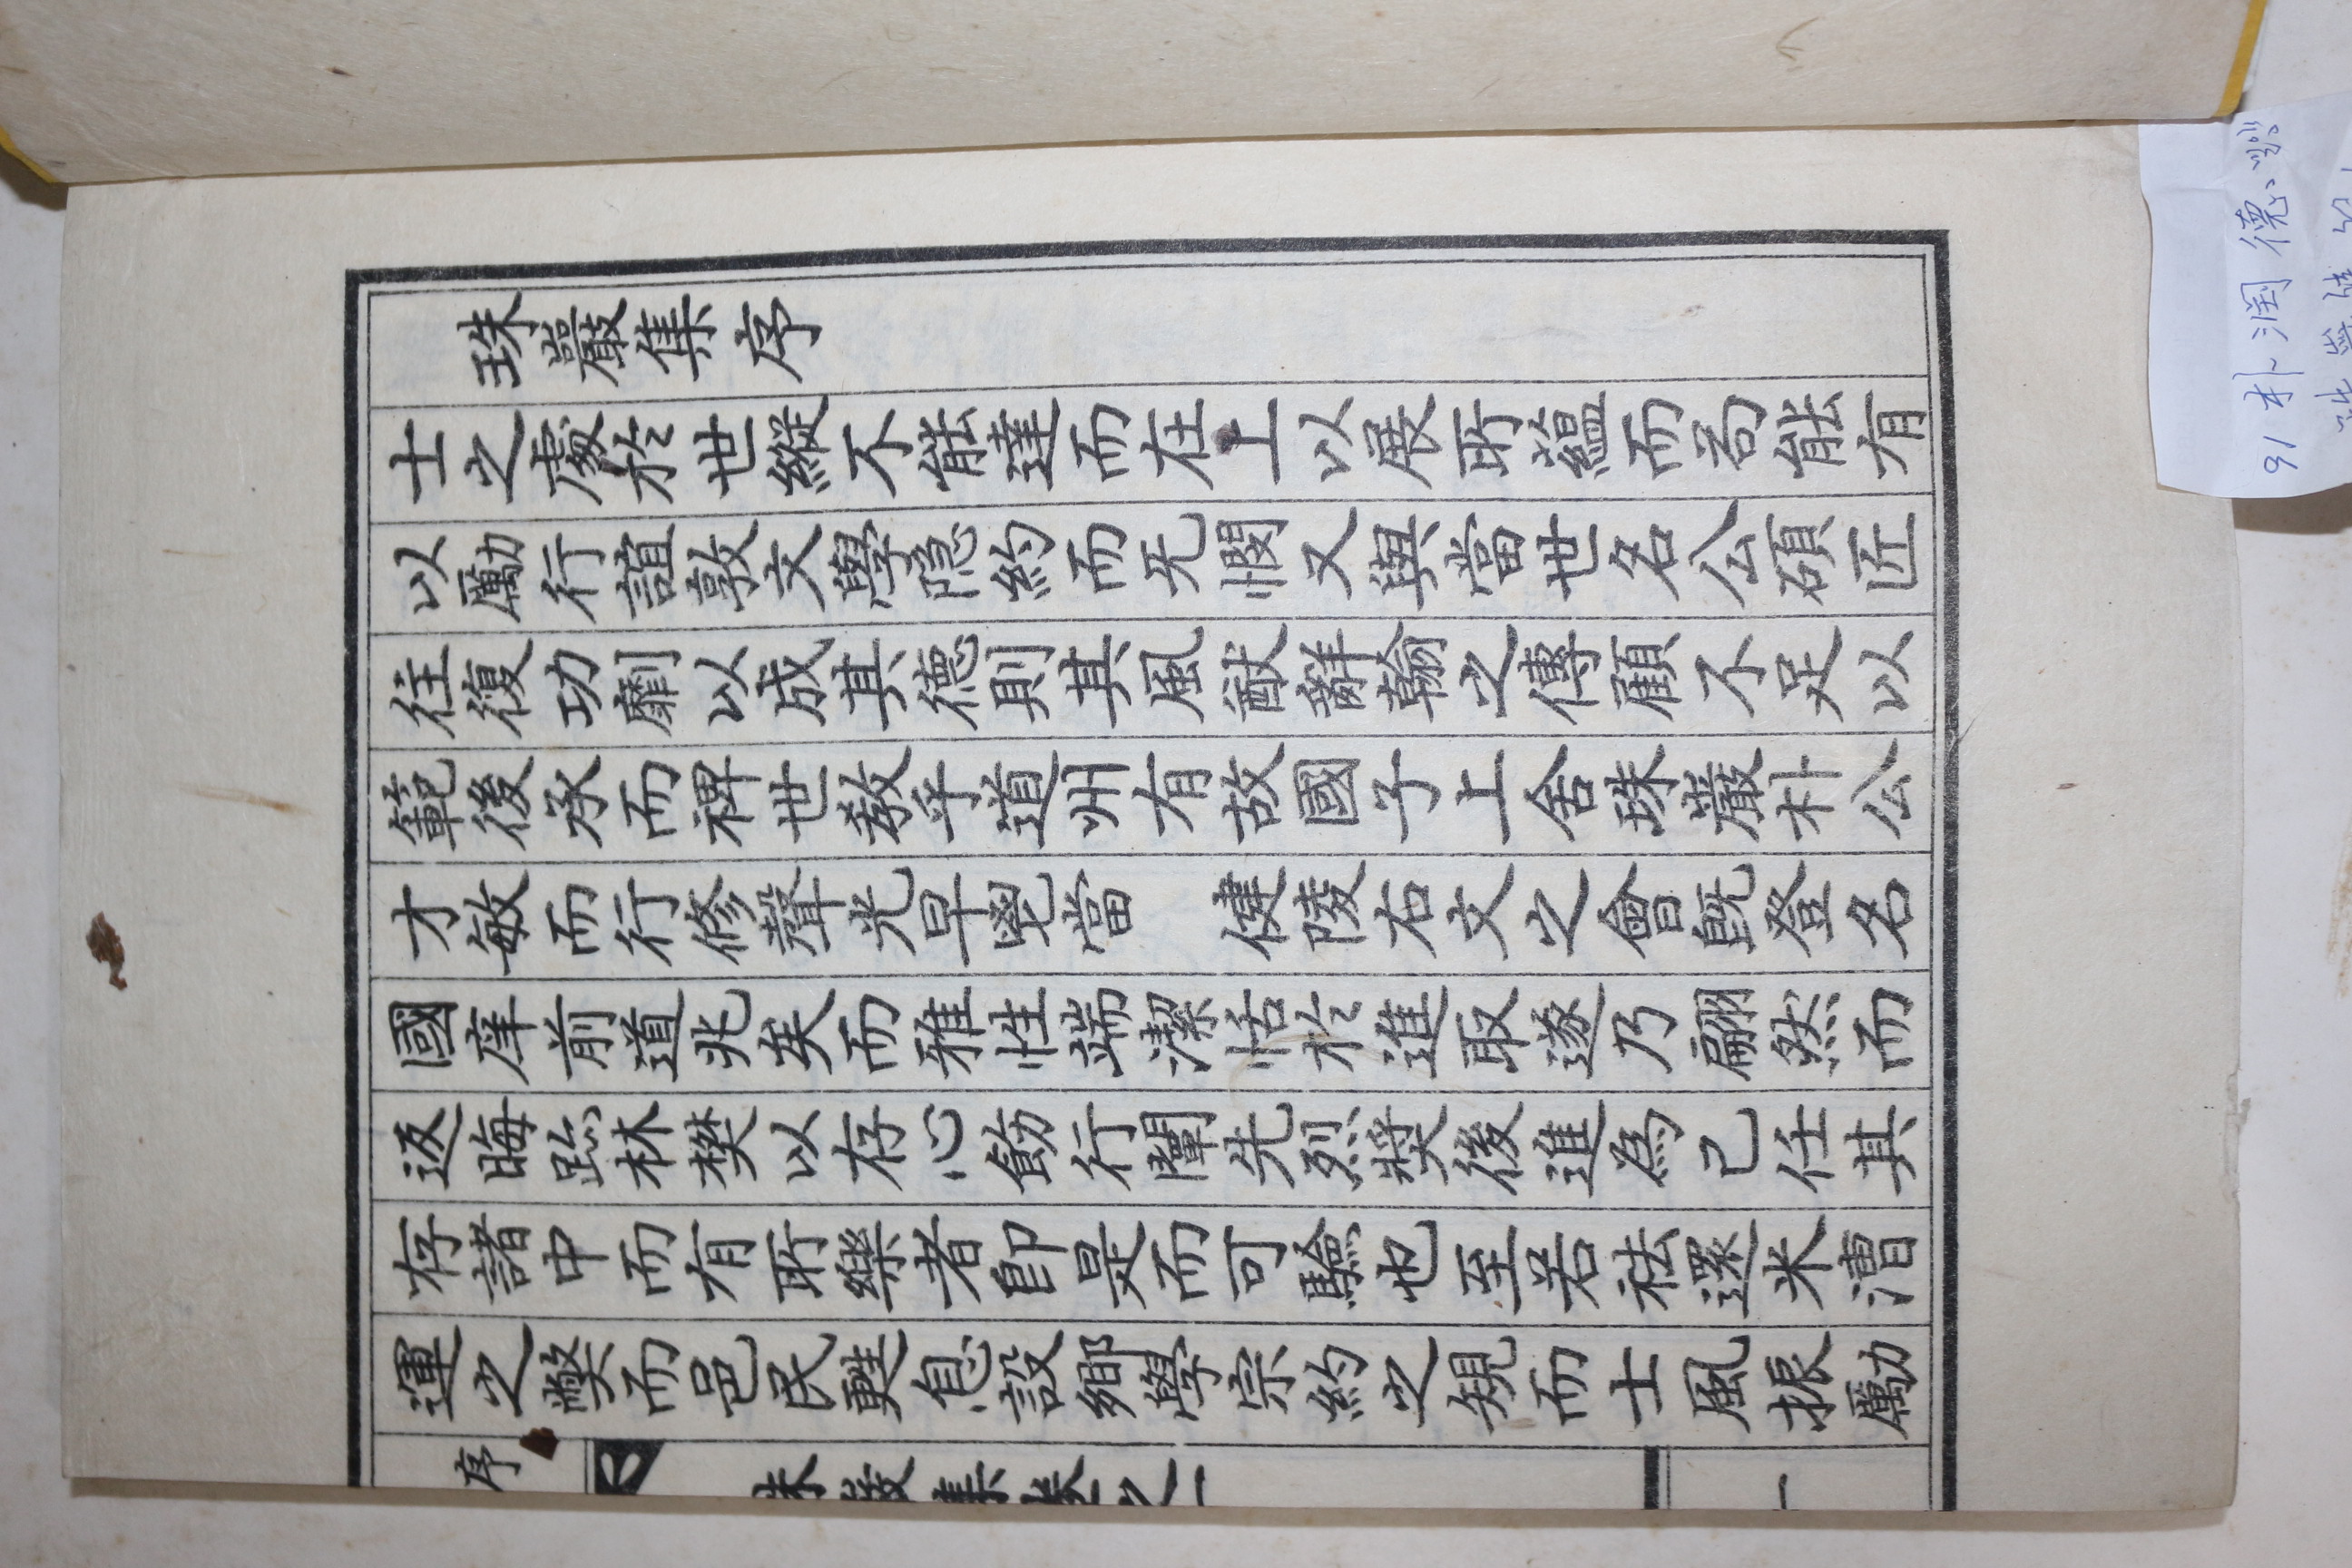 珠巖集序
士之處於世縱不能達而在上以展所蘊而苟能有
以勵行誼敦文學隱約而无憫又與當世名公碩匠
往復功靡以成其德則其風猷辭翰之傳顧不足以
範後承而裨世敎乎道州有故國子上舍珠巖朴公
才敏而行修聲光早鬯當 健陵右文之會旣登名
國庠前道兆矣而雅性端潔恬於進取遂乃翩然而
返晦跡林樊以存心飭行闡先烈奬後進為己任其
存諸中而有所樂者卽是而可驗也至若祛還米漕
運之弊而邑民甦息設鄕學宗約之規而士風振勵
序 珠巖集卷之一 一
91 朴潤德